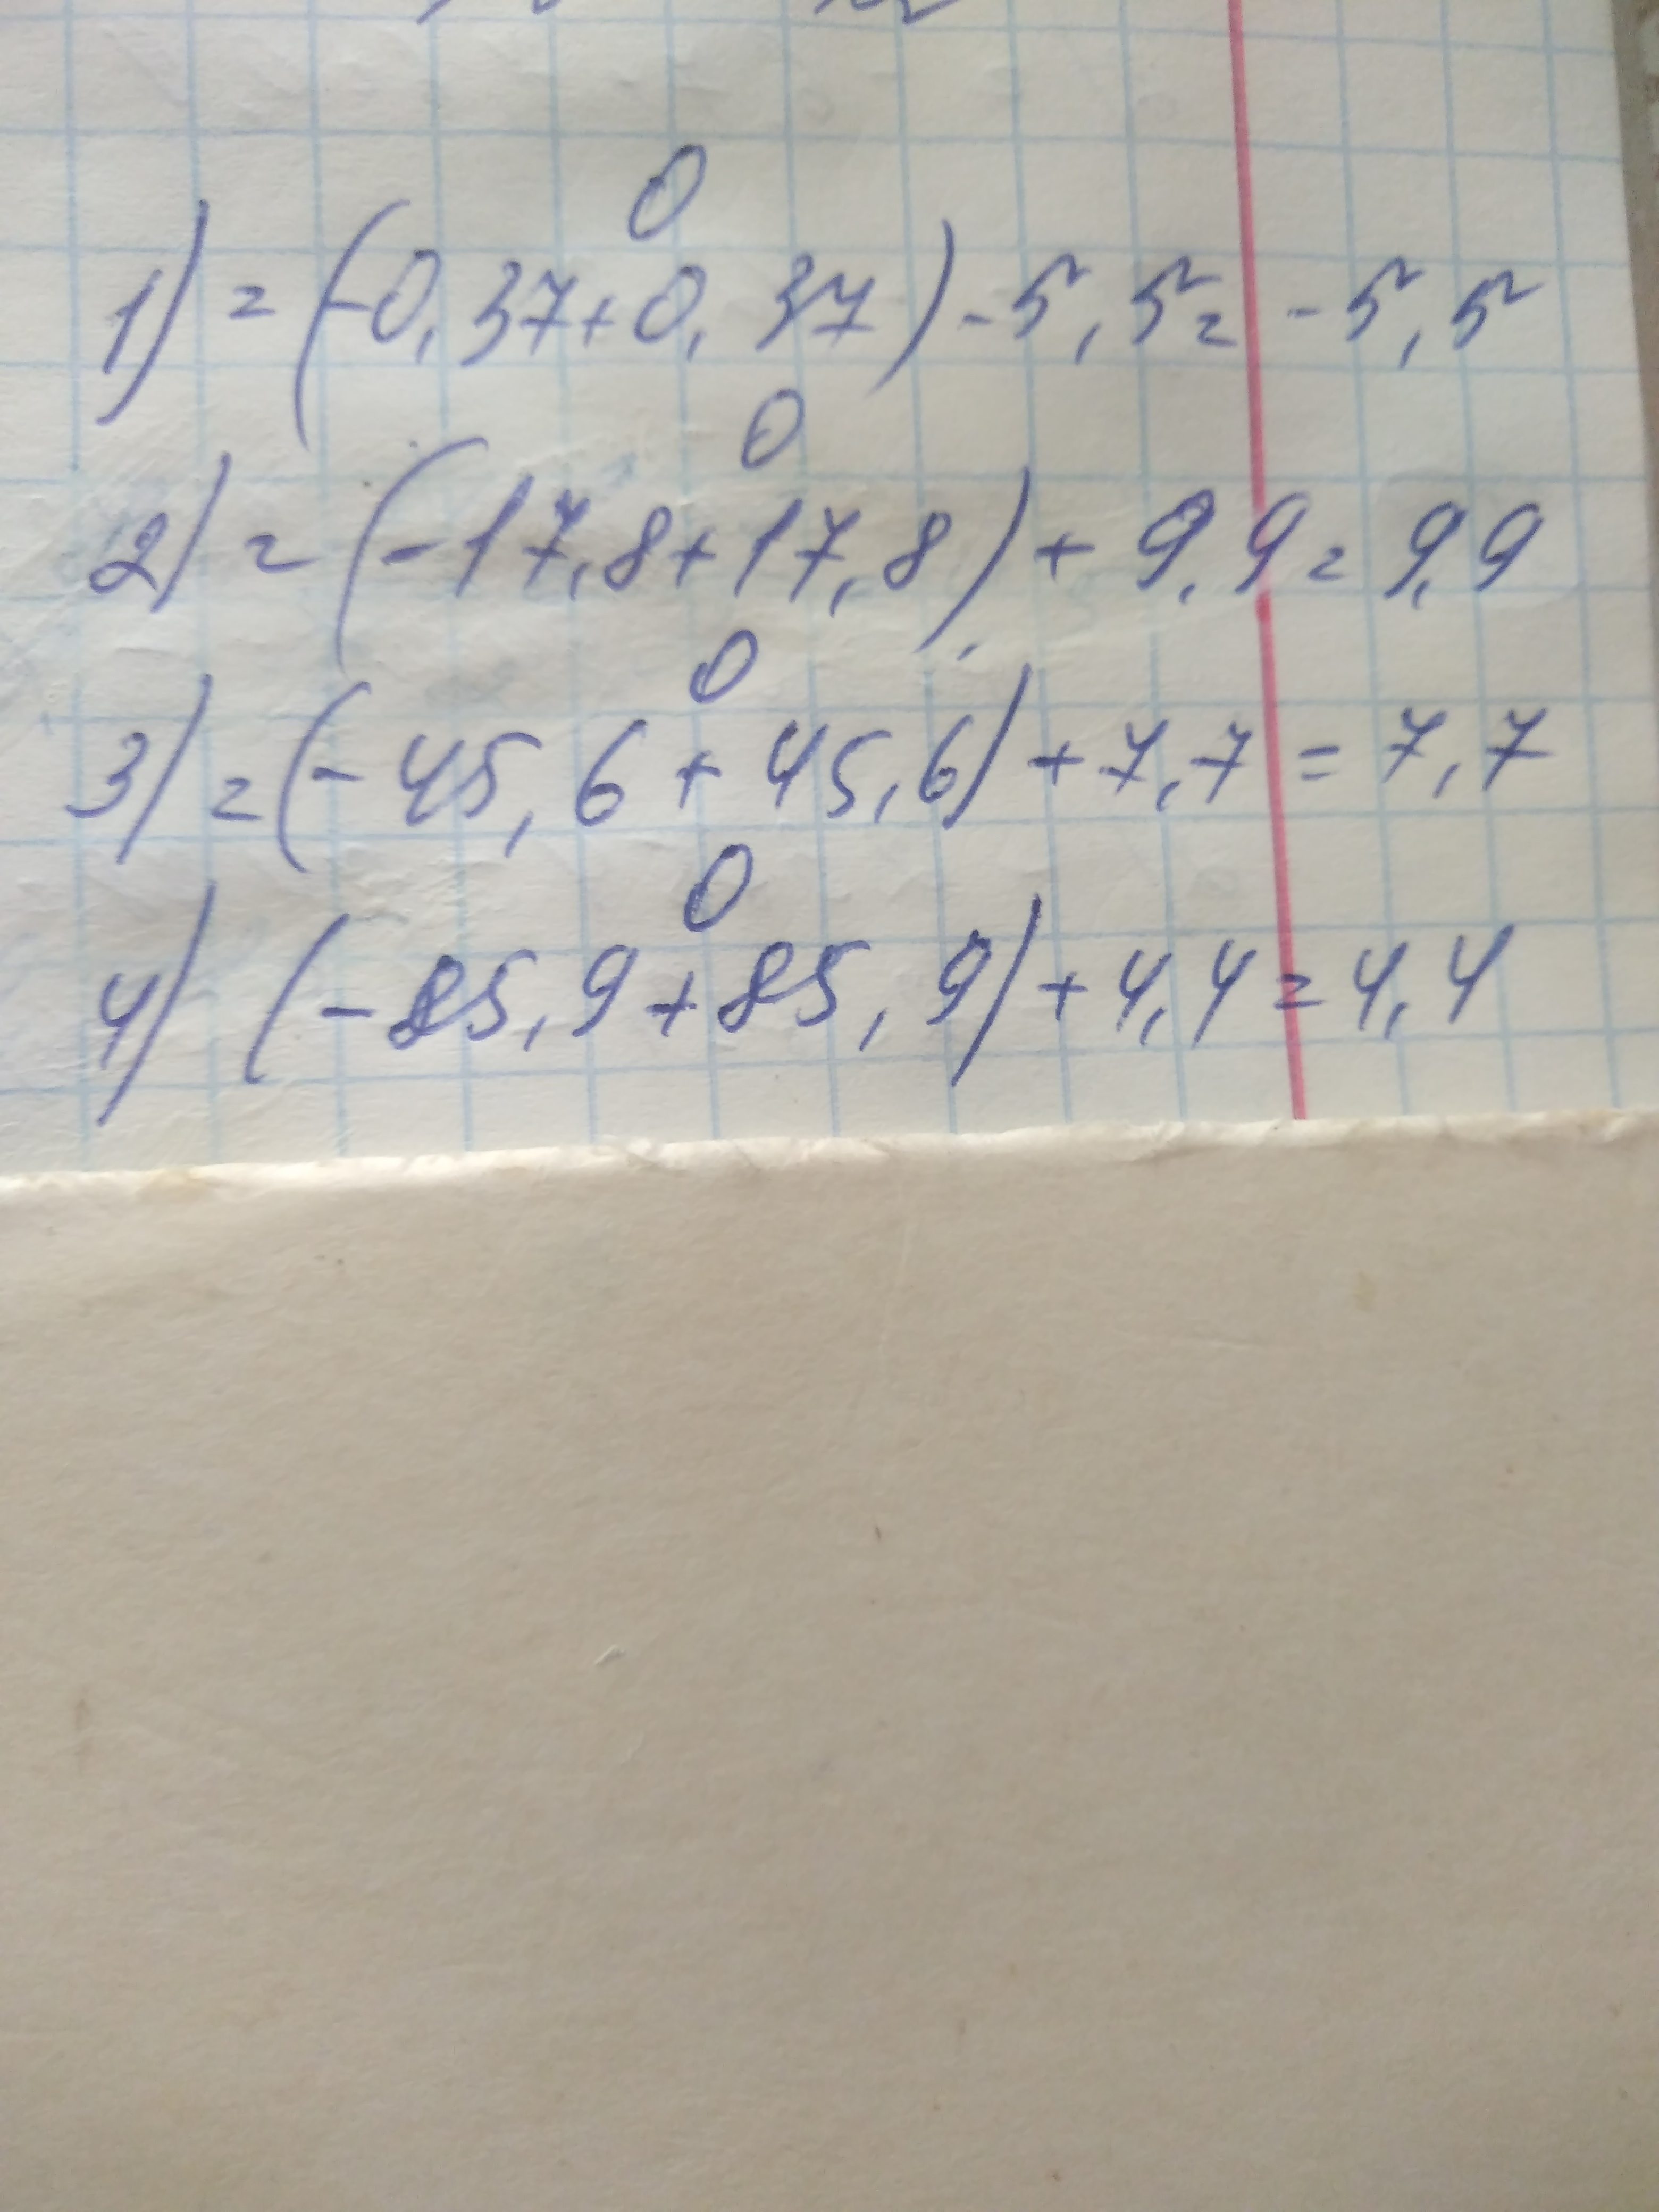 0
1) = (-0,37+0,37)-5,5=-5,5
0
2) = (-17,8+17,8)+9,9=9,9
0
3) = (-45,6+45,6)+7,7=7,7
0
4) (-85,9+85,9)+4,4=4,4